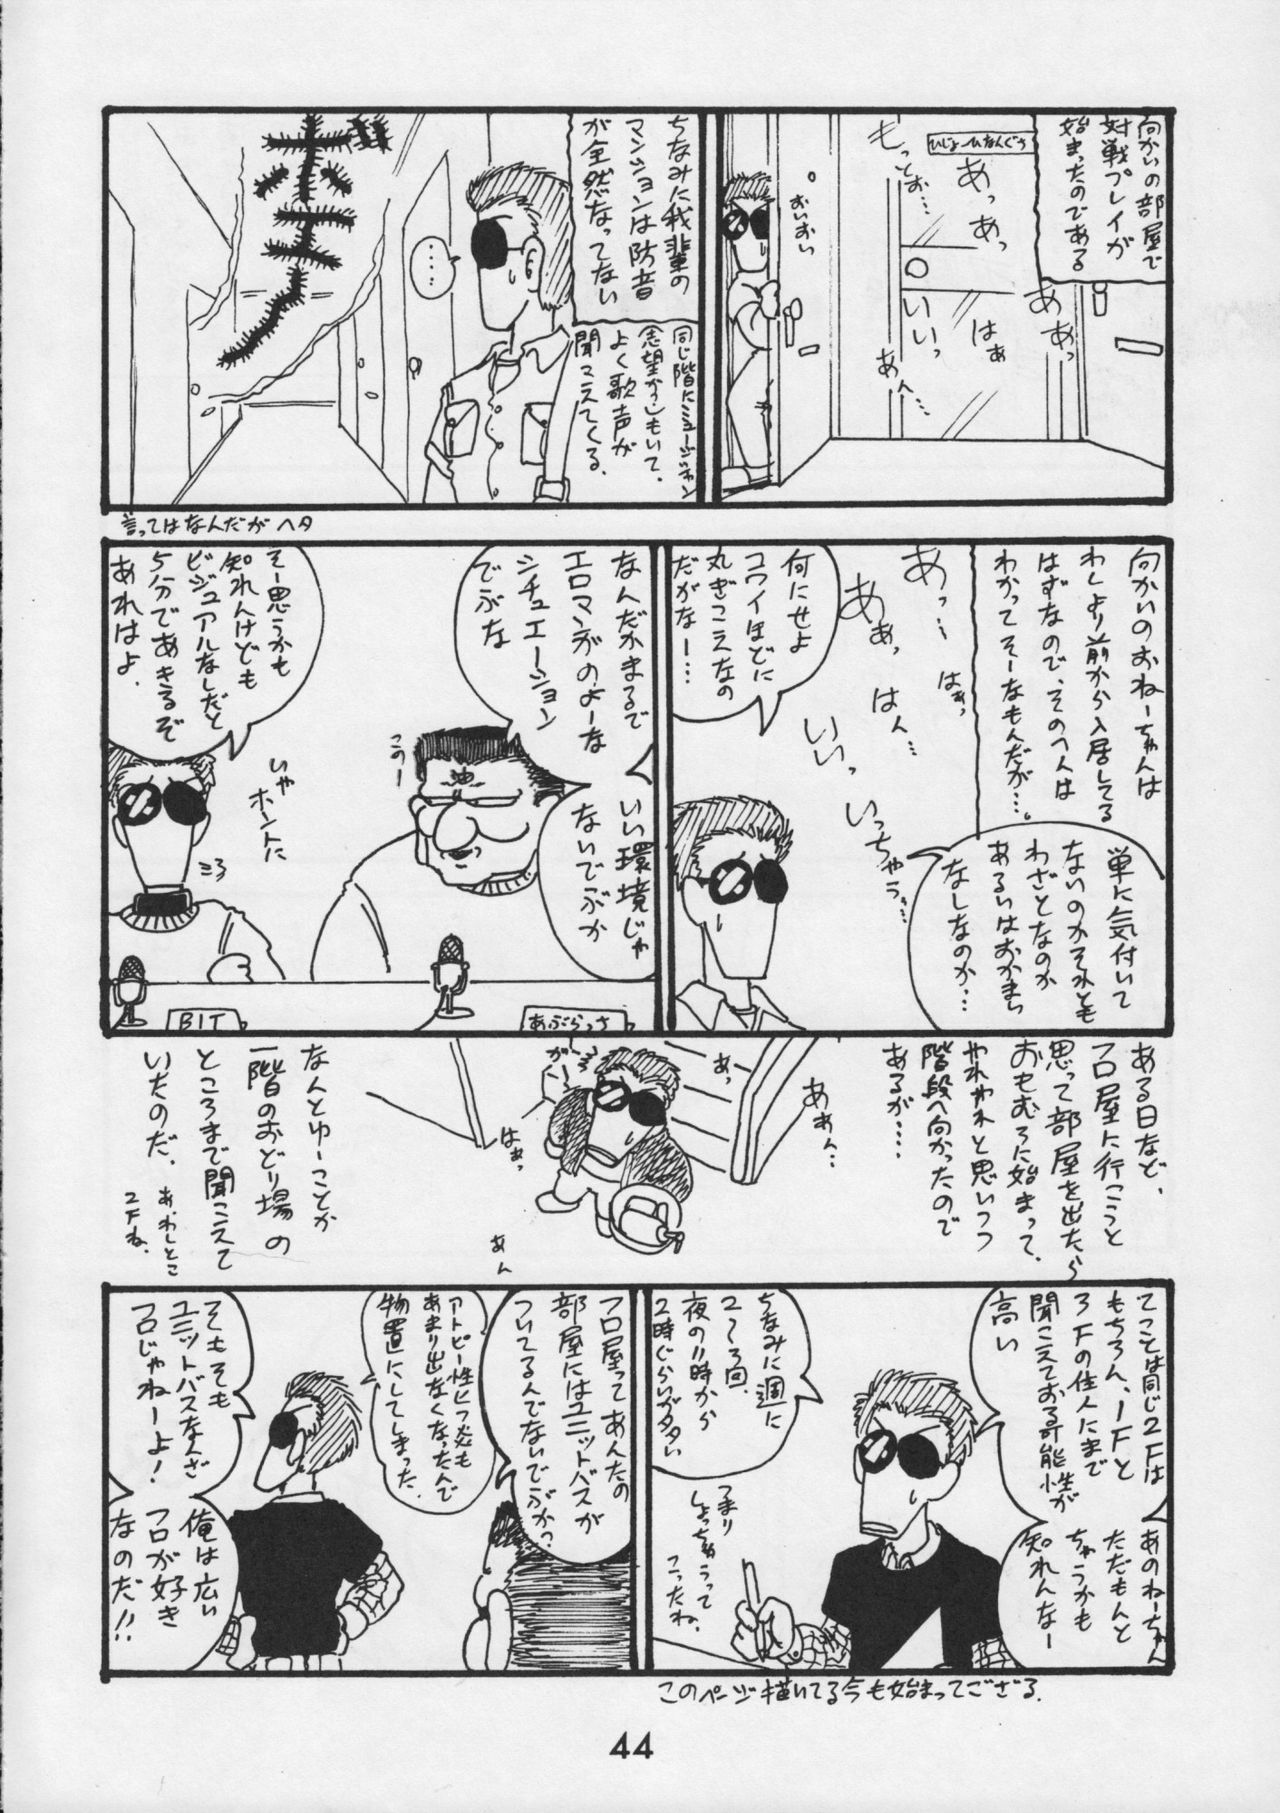 向かいの部屋で
対戦プレイが
始まったのである
ひじょーひなんぐち
もっとぉ…
あっあっ
おいおい
○いいっ
ああっ
はぁ
あん…
ちなみに我輩の
マンションは防音
が全然なってない
同じ階にミュージシャン
志望かうしもいて、
よく歌声が
聞こえてくる。
……
言ってはなんだがヘタ
向かいのおねーちゃんは
わしより前から入居してる
はずなので、その人は
わかってそーなもんだが…。
単に気付いて
ないのかそれとも
わざとなのか
あるいはおかまい
なしなのか…
あっ…
はぁっ
ああっ
はん…
いいっ
いっちゃうぅ…
何にせよ
コワイほどに
丸ぎこえなの
だがなー…
なんだかまるで
エロマンガのよーな
シチュエーション
でぶな
いい環境じゃ
ないでぶか
このー
油
そー思うかも
知れんけども
ビジュアルなしだと
5分であきるぞ
あれはよ.
いや
ホントに
BIT
あぶらっさ
ある日など、
フロ屋に行こうと
思って部屋を出たら
おもむろに始まって、
やれやれと思いつつ
階段へ向かったので
あるが……
あぁん…
あっ
はぁっ
あん
なんとゆーことか
一階のおどり場の
ところまで聞こえて
いたのだ.
あ、わしとこ
2Fね.
てことは同じ2Fは
もちろん、1Fと
3Fの住人にまで
聞こえておる可能性が
高い
あのねーちゃん
ただもんと
ちゃうかも
知れんなー
ちなみに週に
2〜3回.
夜の11時から
2時ぐらいが多い
つまり
しょっちゅうって
こったね.
このページ描いてる今も始まってござる.
フロ屋ってあんたの
部屋にはユニットバスが
ついてるんでないでぶか?
アトピー性ヒフ炎も
あまり出なくなったんで
物置にしてしまった.
そもそも
ユニットバスなんざ
フロじゃねーよ!
俺は広い
フロが好き
なのだ!!
44